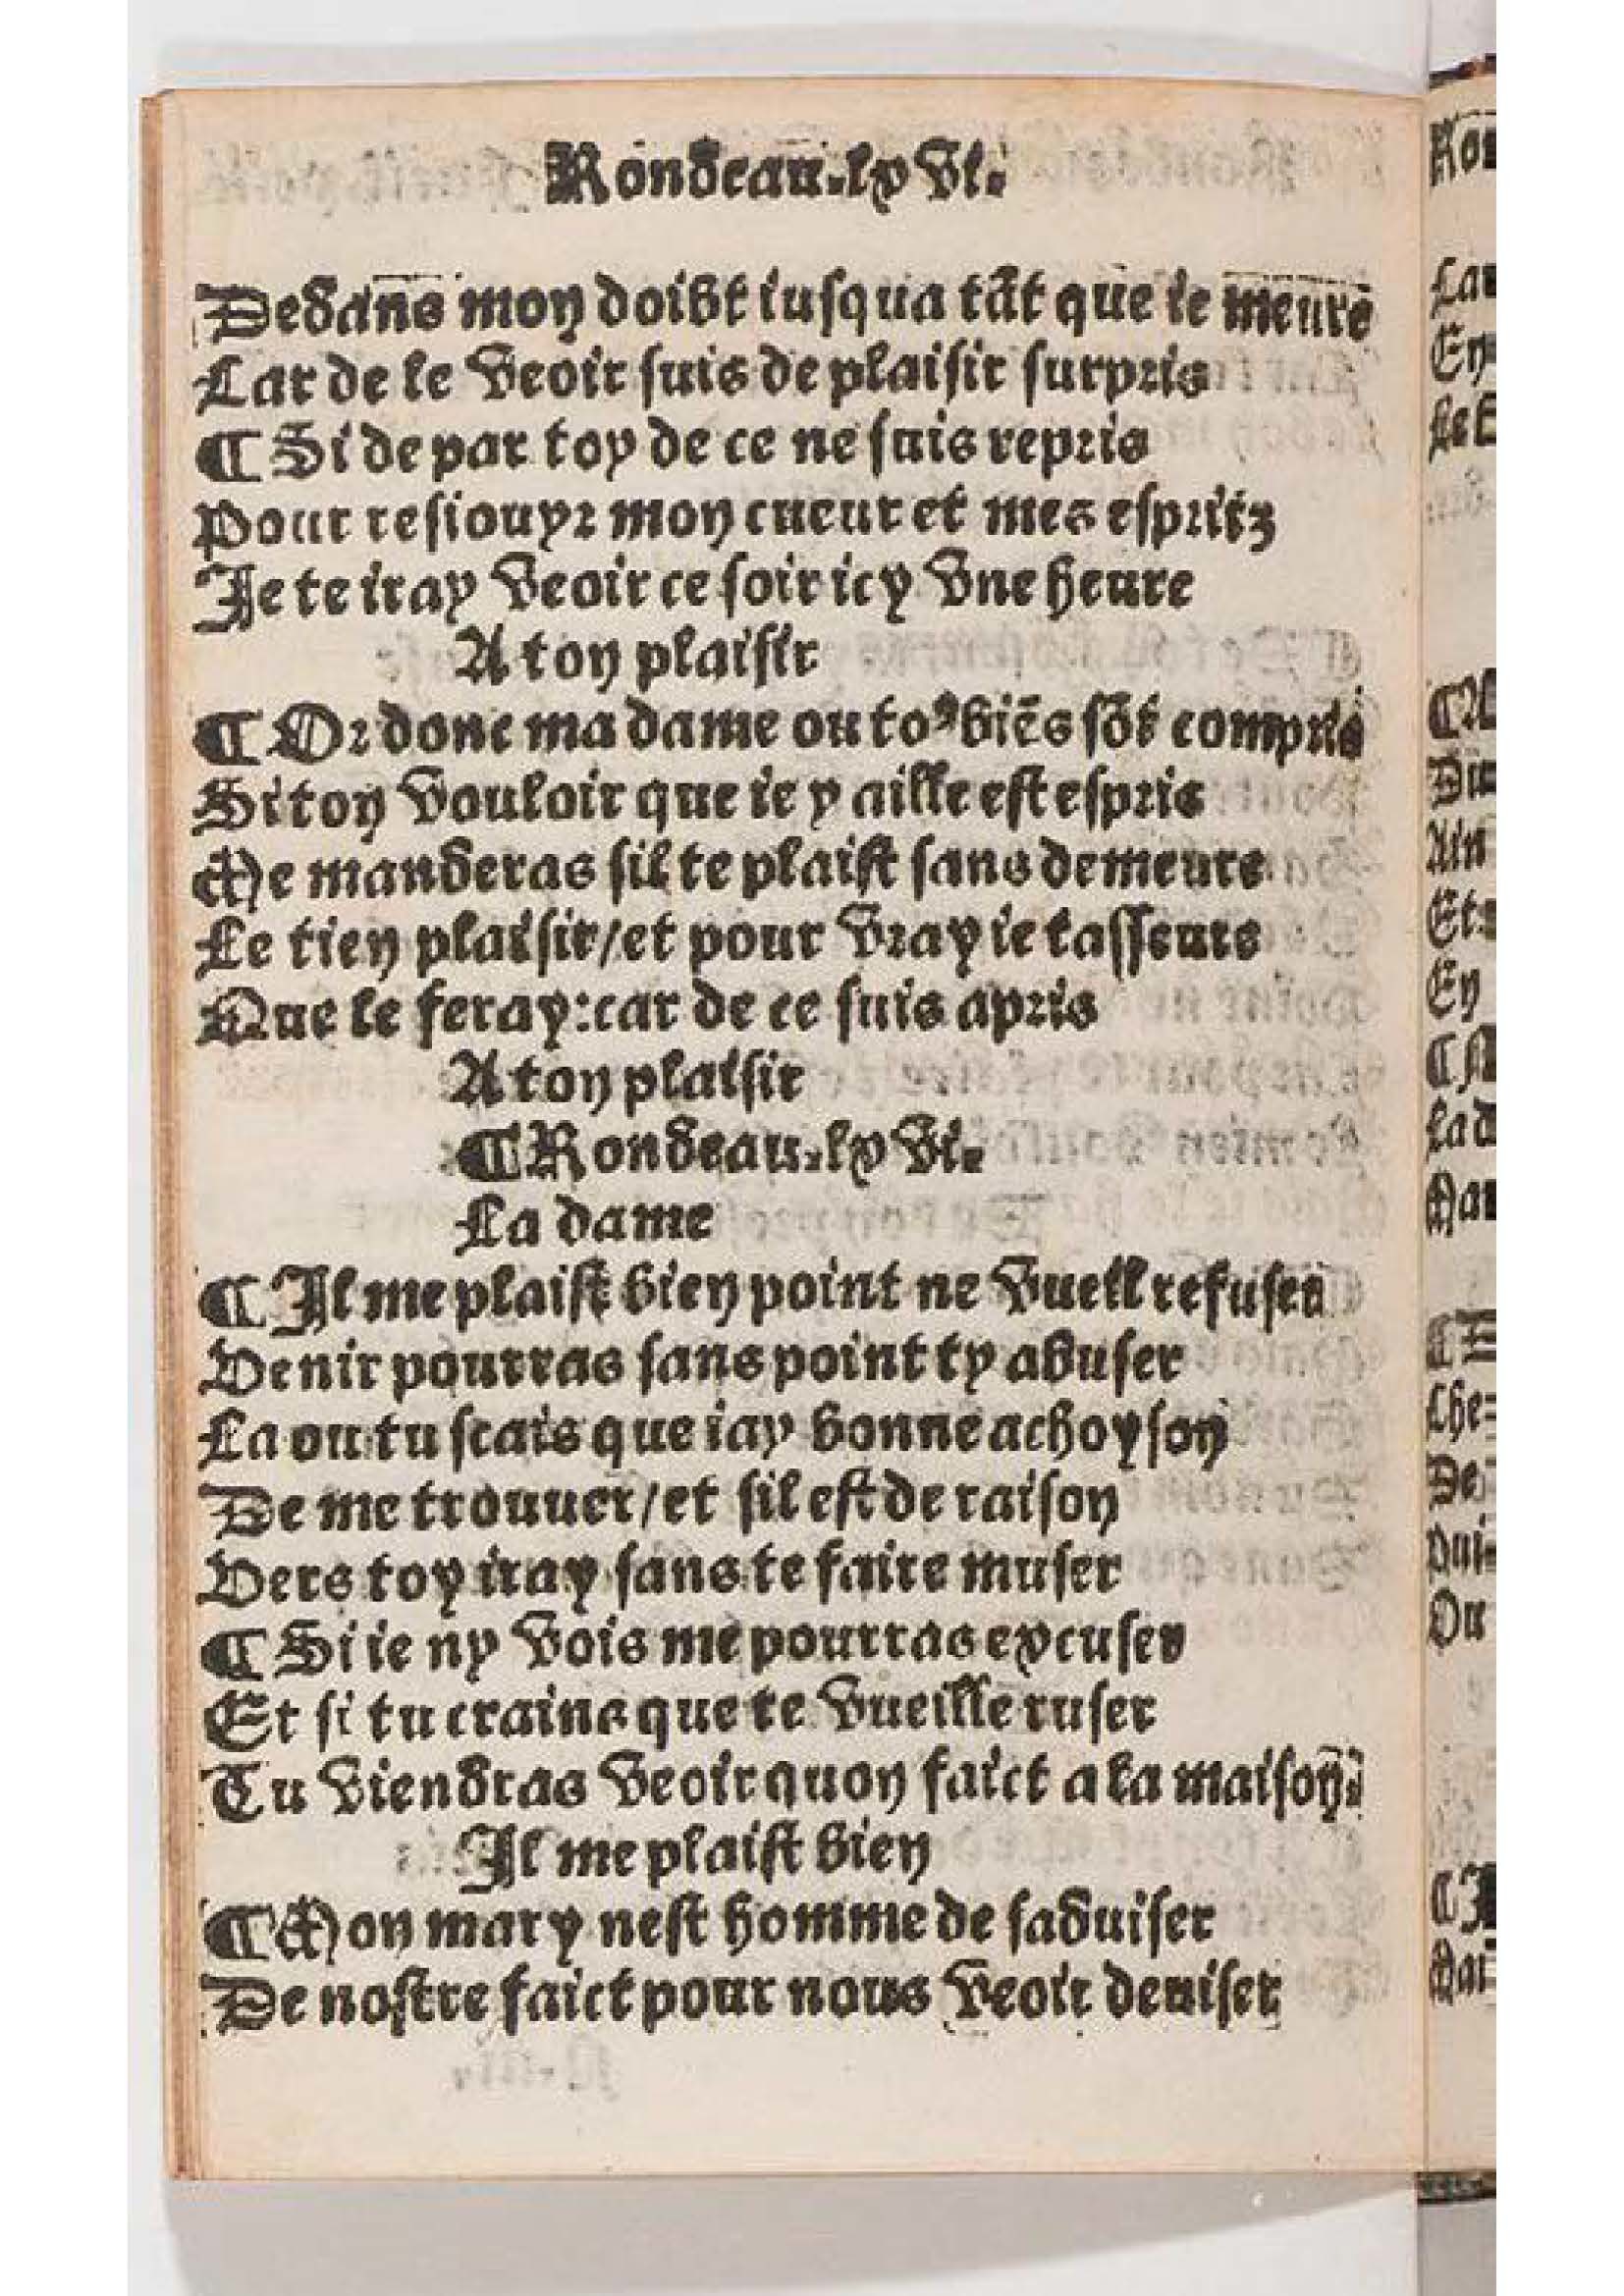 Rondeau.lxvi.
Dedans moy doibt iusqua tāt que ie meure
Car de le veoir suis de plaisir surpris
¶ Si de par toy de ce ne suis repris
Pour resiouyr mon cueur et mes espritz
Je te iray veoir ce soir icy vne heure
A ton plaisir
¶ Or donc ma dame ou toꝰ biēs sōt compris
Si ton vouloir que ie y aille est espris
Me manderas sil te plaist sans demeure
Le tien plaisir/et pour vray ie tasseure
Que le feray:car de ce suis apris
A ton plaisir
¶ Rondeau.lxvi.
La dame
¶ Il me plaist bien point ne vueil refuser
Venir pourras sans point ty abuser
La ou tu scais que iay bonne achoyson
De me trouuer/et sil est de raison
Vers toy iray sans te faire muser
¶ Si ie ny vois me pourras excuser
Et si tu crains que te vueille ruser
Tu viendras veoir quon faict a la maison.
Il me plaist bien
¶ Mon mary nest homme de saduiser
De nostre faict pour nous veoir deuiser